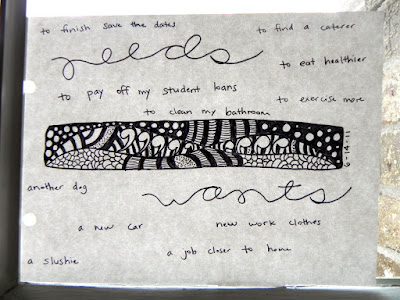 to finish save the dates
to find a caterer
needs
to eat healthier
to pay off my student loans
to exercise more
to clean my bathroom
6-14-11
another dog
wants
a new car
new work clothes
a job closer to home
a slushie